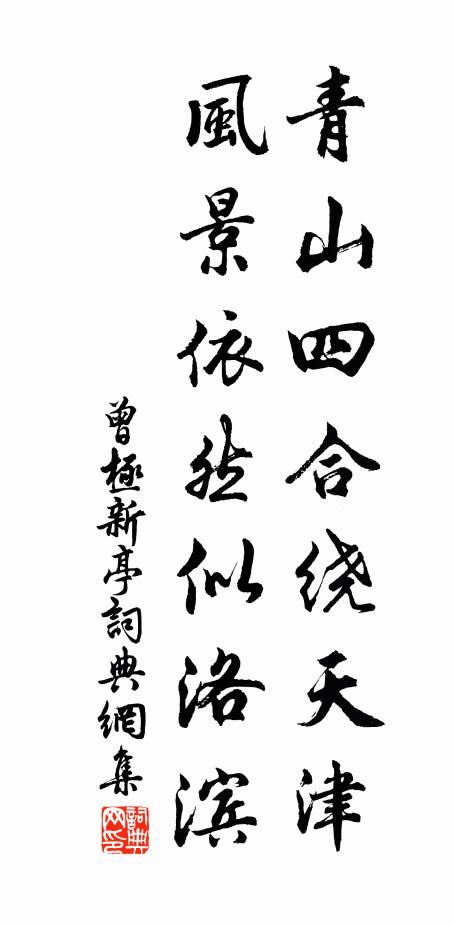 青山四合绕天津
風景依然似洛滨
曾極新亭詞典網集
詞典網印